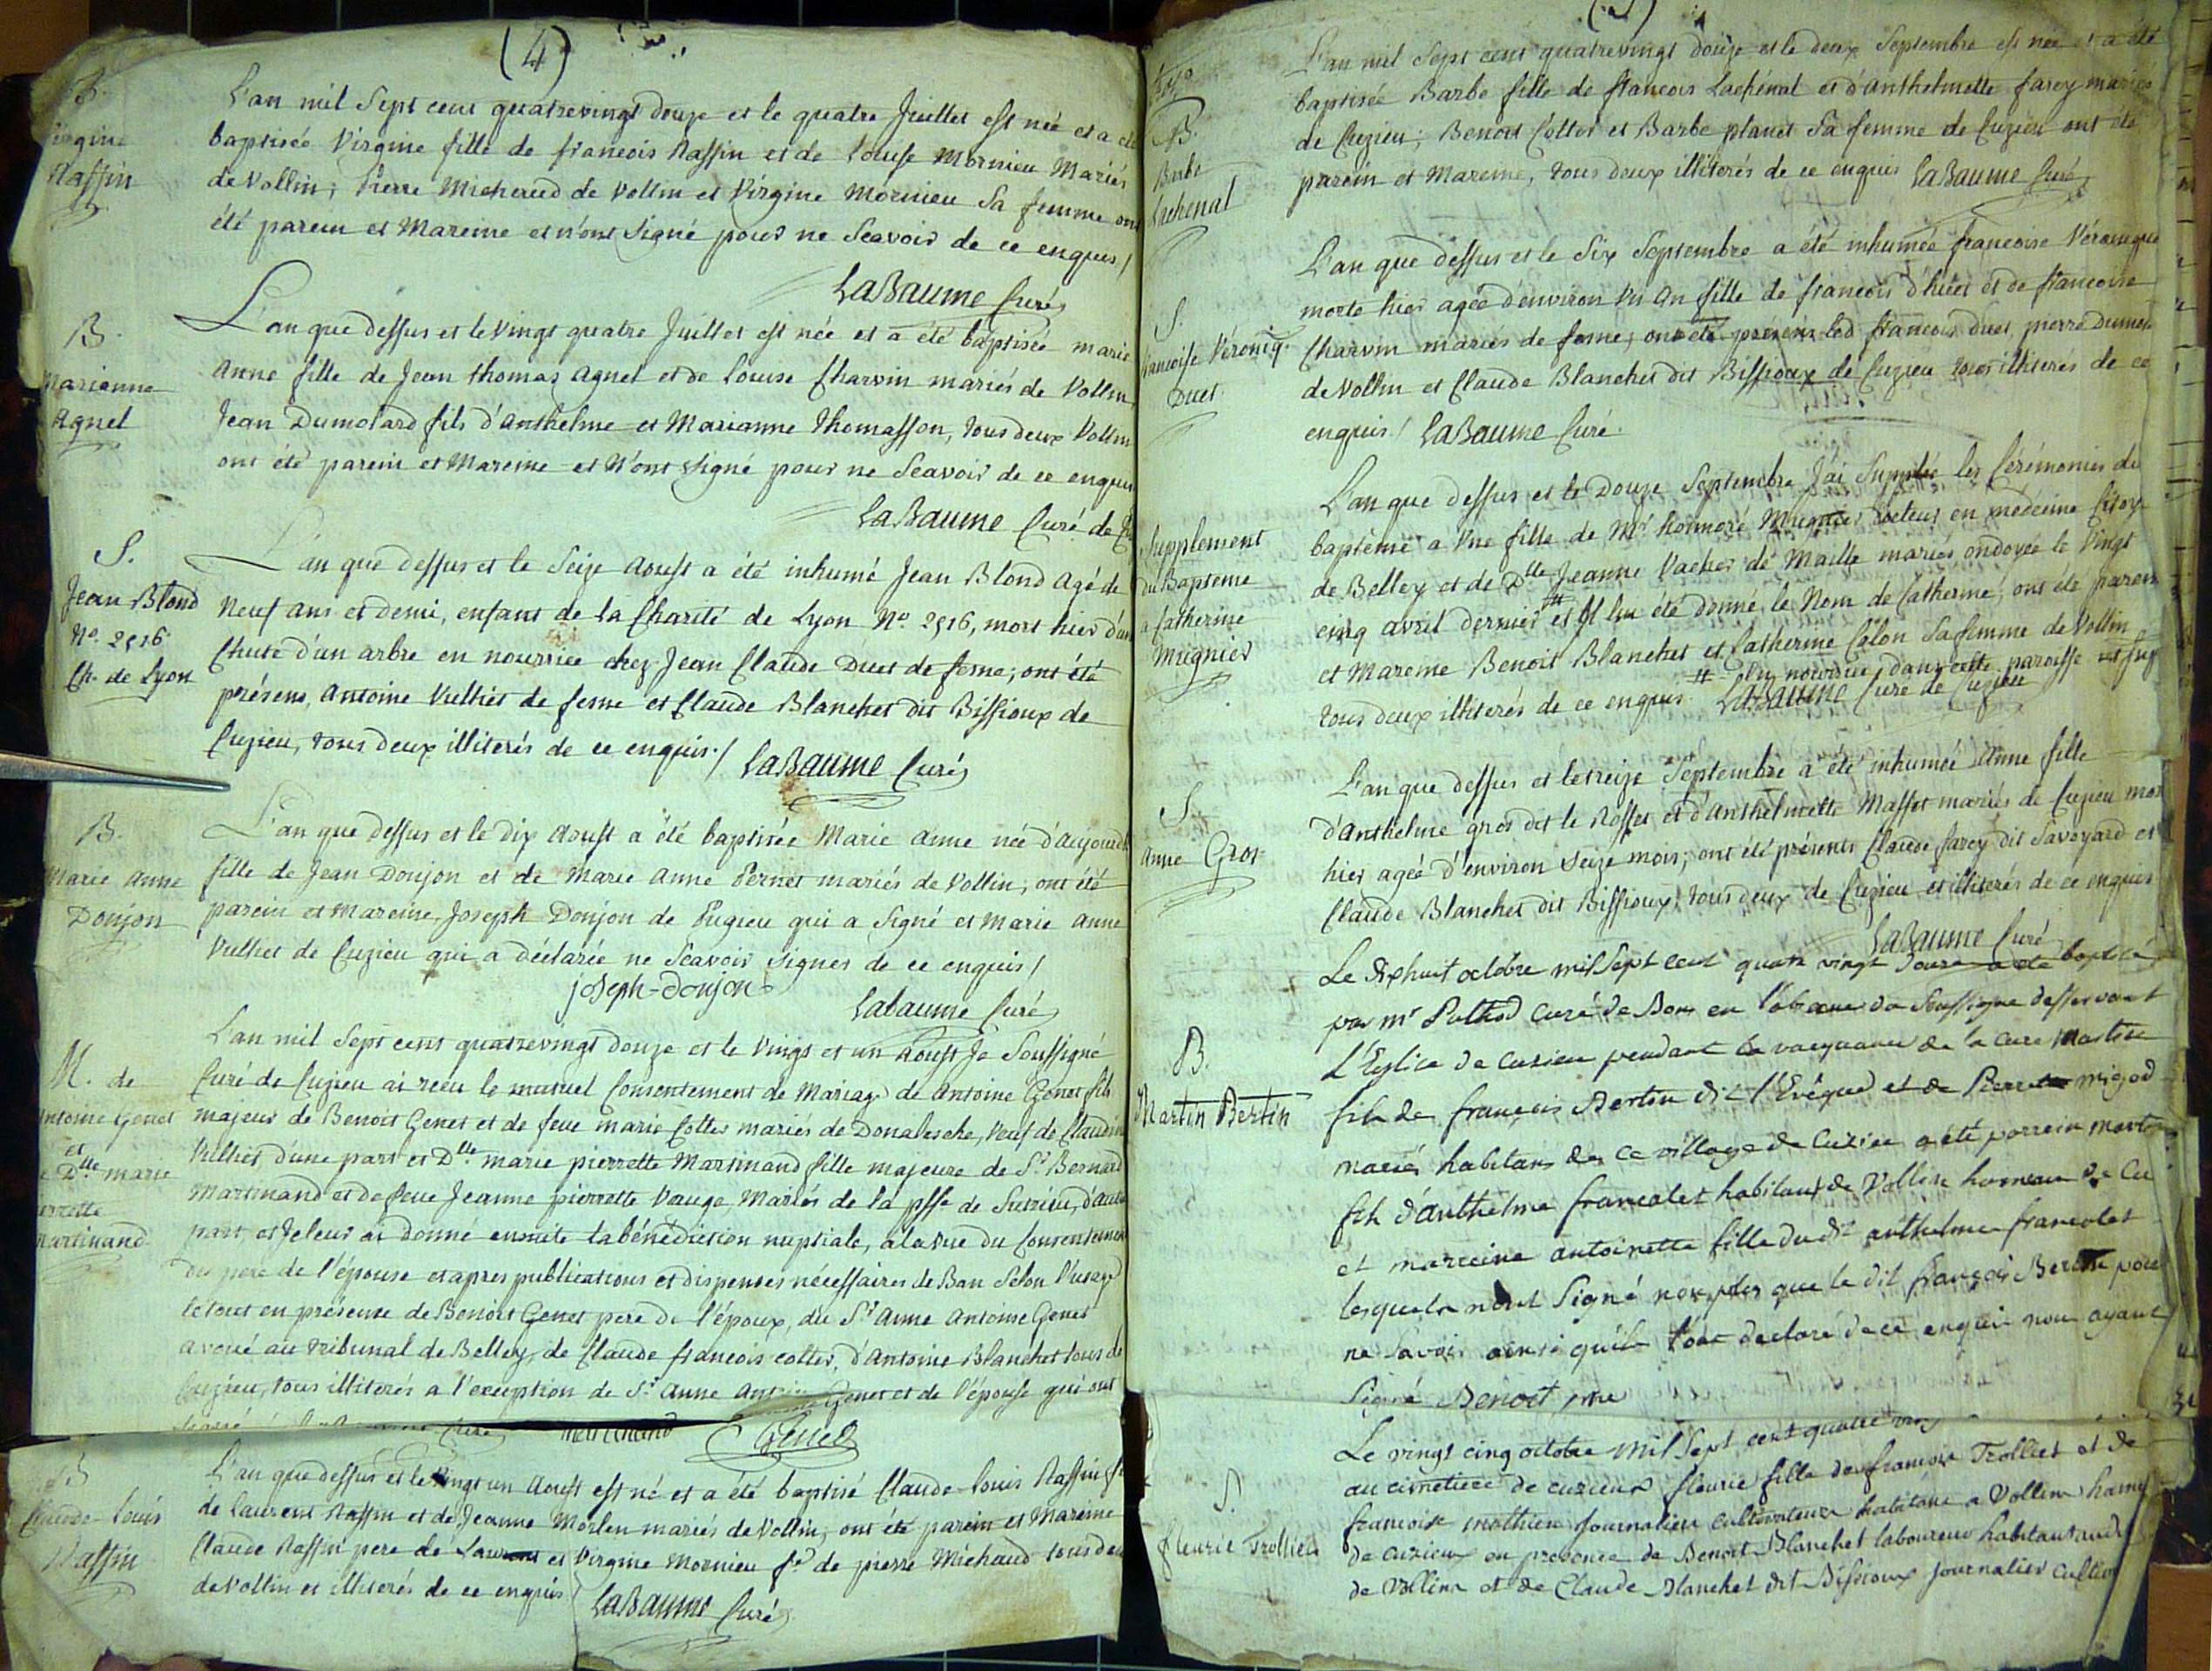 (4)
B.
Virgine
Raffin
L'an mil Sept cent quatrevingt douze et le quatre Juillet est née et a été
baptisée Virgine fille de francois Raffin et de Louise Mornieu Mariés
de Vollin; Pierre Michaud de Vollin et Virgine Mornieu Sa femme ont
été parein et Mareine et n'ont Signé pour ne Scavoir de ce enquis /
LaBaume Curé
B.
Marianne
Agnel
L'an que dessus et le Vingt quatre Juillet est née et a été baptisée marie
Anne fille de Jean thomas Agnel et de Louise Charvin mariés de Vollin,
Jean Dumolard fils d'Anthelme et Marianne Thomasson, tous deux Vollin
ont été parein et Mareine et N'ont Signé pour ne Scavoir de ce enquis
LaBaume Curé de
S.
Jean Blond
No. 2516
Ch. de Lyon
L'an que dessus et le Seize Aoust a été inhumé Jean Blond Agé de
Neuf ans et demi, enfant de la Charité de Lyon No. 2516, mort hier d'une
Chute d'un arbre en nourrice chez Jean Claude Duet de ferne; ont été
présens, Antoine Vulliet de ferne et Claude Blanchet dit Bissioux de
Cuzieu, tous deux illiterés de ce enquis / LaBaume Curé
B.
Marie Anne
Donjon
L'an que dessus et le dix Aoust a été baptisée Marie Anne née d'Aujourd
fille de Jean Donjon et de Marie Anne Pernet mariés de Vollin; ont été
parein et Mareine, Joseph Donjon de Pugieu qui a Signé et Marie Anne
Vulliet de Cuzieu qui a déclarée ne Scavoir Signer de ce enquis /
joseph-donjon
Labaume Curé
M. de
Antoine Genet
et
Dlle marie
Martinand
L'an mil Sept cent quatrevingt douze et le Vingt et un Aoust Je Soussigné
Curé de Cuzieu ai recu le mutuel Consentement de Mariage de Antoine Genet fils
majeur de Benoit Genet et de feue marie Cottet mariés de Donalesche, Veuf de Claudine
Vulliet, d'une part et Dlle marie pierrette Martinand fille majeure de Sr Bernard
Martinand et de feue Jeanne pierrette Vauge, Mariés de la psse de Sutrieu, d'autre
part, et Je leur ai donné ensuite la bénédiction nuptiale, a la vue du Consentement
du pere de l'épouse et apres publications et dispenses nécessaires de Ban Selon l'usage
le tout en présence de Benoit Genet pere de l'époux, du Sr Anne Antoine Genet
avoué au tribunal de Belley, de Claude francois Cottet, d'Antoine Blanchet tous de
Cuzieu, tous illiterés a l'exception de Sr Anne Antoine Genet et de l'épouse qui ont
Martinand Genet
B
Claude-Louis
Raffin
L'an que dessus et le Vingt un Aoust est né et a été baptisé Claude-Louis Raffin
de Laurent Raffin et de Jeanne Morlen mariés de Vollin; ont été parein et Mareine
Claude Raffin pere de Laurent et Virgine Mornieu fe de pierre Michaud tous deux
de Vollin et illiterés de ce enquis / LaBaume Curé
B.
Barbe
Lachenal
L'an mil Sept cent quatrevingt douze et le deux Septembre est née et a été
baptisée Barbe fille de francois Lachenal et d'Anthelmette farey mariés
de Cuzieu; Benoit Cottet et Barbe planet Sa femme de Cuzieu ont été
parein et Mareine, tous deux illiterés de ce enquis LaBaume Curé
S.
francoise Véroniq.
Duet
L'an que dessus et le Six Septembre a été inhumée francoise Véronique
morte hier agée d'environ Un An fille de francois d'huet et de francoise
Charvin mariés de ferne; ont été présens led. francois duet, pierre dumol
de Vollin et Claude Blanchet dit Bissioux de Cuzieu tous illiterés de ce
enquis / LaBaume Curé
Supplement
du Bapteme
a Catherine
Mugnier
L'an que dessus et le Douze Septembre J'ai Supplée les Cérémonies du
baptême a Une fille de Mr honnoré Mugnier docteur en médecine Citoy
de Belley et de Dlle Jeanne Vacher de Maille mariés ondoyée le Vingt
cinq avril dernier # et Il lui été donné le Nom de Catherine; ont été parein
et Mareine Benoit Blanchet et Catherine Calon Sa femme de Vollin
# en nourrice dans cette paroisse
tous deux illiterés de ce enquis. LaBaume Curé de Cuzieu
S.
Anne Gros
L'an que dessus et le treize Septembre a été inhumée Anne fille
d'Anthelme gros dit le Rosset et d'Anthelmette Masset mariés de Cuzieu mor
hier agée d'environ Seize mois; ont été présents Claude farey dit Savoyard et
Claude Blanchet dit Bissioux tous deux de Cuzieu et illiterés de ce enquis
LaBaume Curé
B.
Martin Bertin
Le dixhuit octobre mil Sept cent quatre vingt douze a été baptisé
par mr Puthod curé de Bons en l'absence du Soussigné desservant
L'Eglise de cuzieu pendant la vacquance de la cure Martin
fils de françois Bertin dit l'Evêque et de Pierrette migod
mariés habitans de ce village de Cuzieu a été parrein martin
fils d'anthelme francolet habitant de Vollin hameau de Cu
et marreine antoinette fille dudt anthelme francolet
lesquels n'ont Signé non plus que le dit françois Bertin pour
ne Savoir ainsi qu'ils l'ont declaré de ce enquis nous ayant
Signé Benoit ptre
S.
fleurie Trolliet
Le vingt cinq octobre mil Sept cent quatre ving
au cimetiere de cuzieux fleurie fille de francois Trolliet et de
francoise mathieu journalier cultivateur habitant a Vollin hame
de cuzieux en presence de Benoit Blanchet laboureur habitant audt
de Vollin et de Claude Blanchet dit Bissioux journalier cultiv